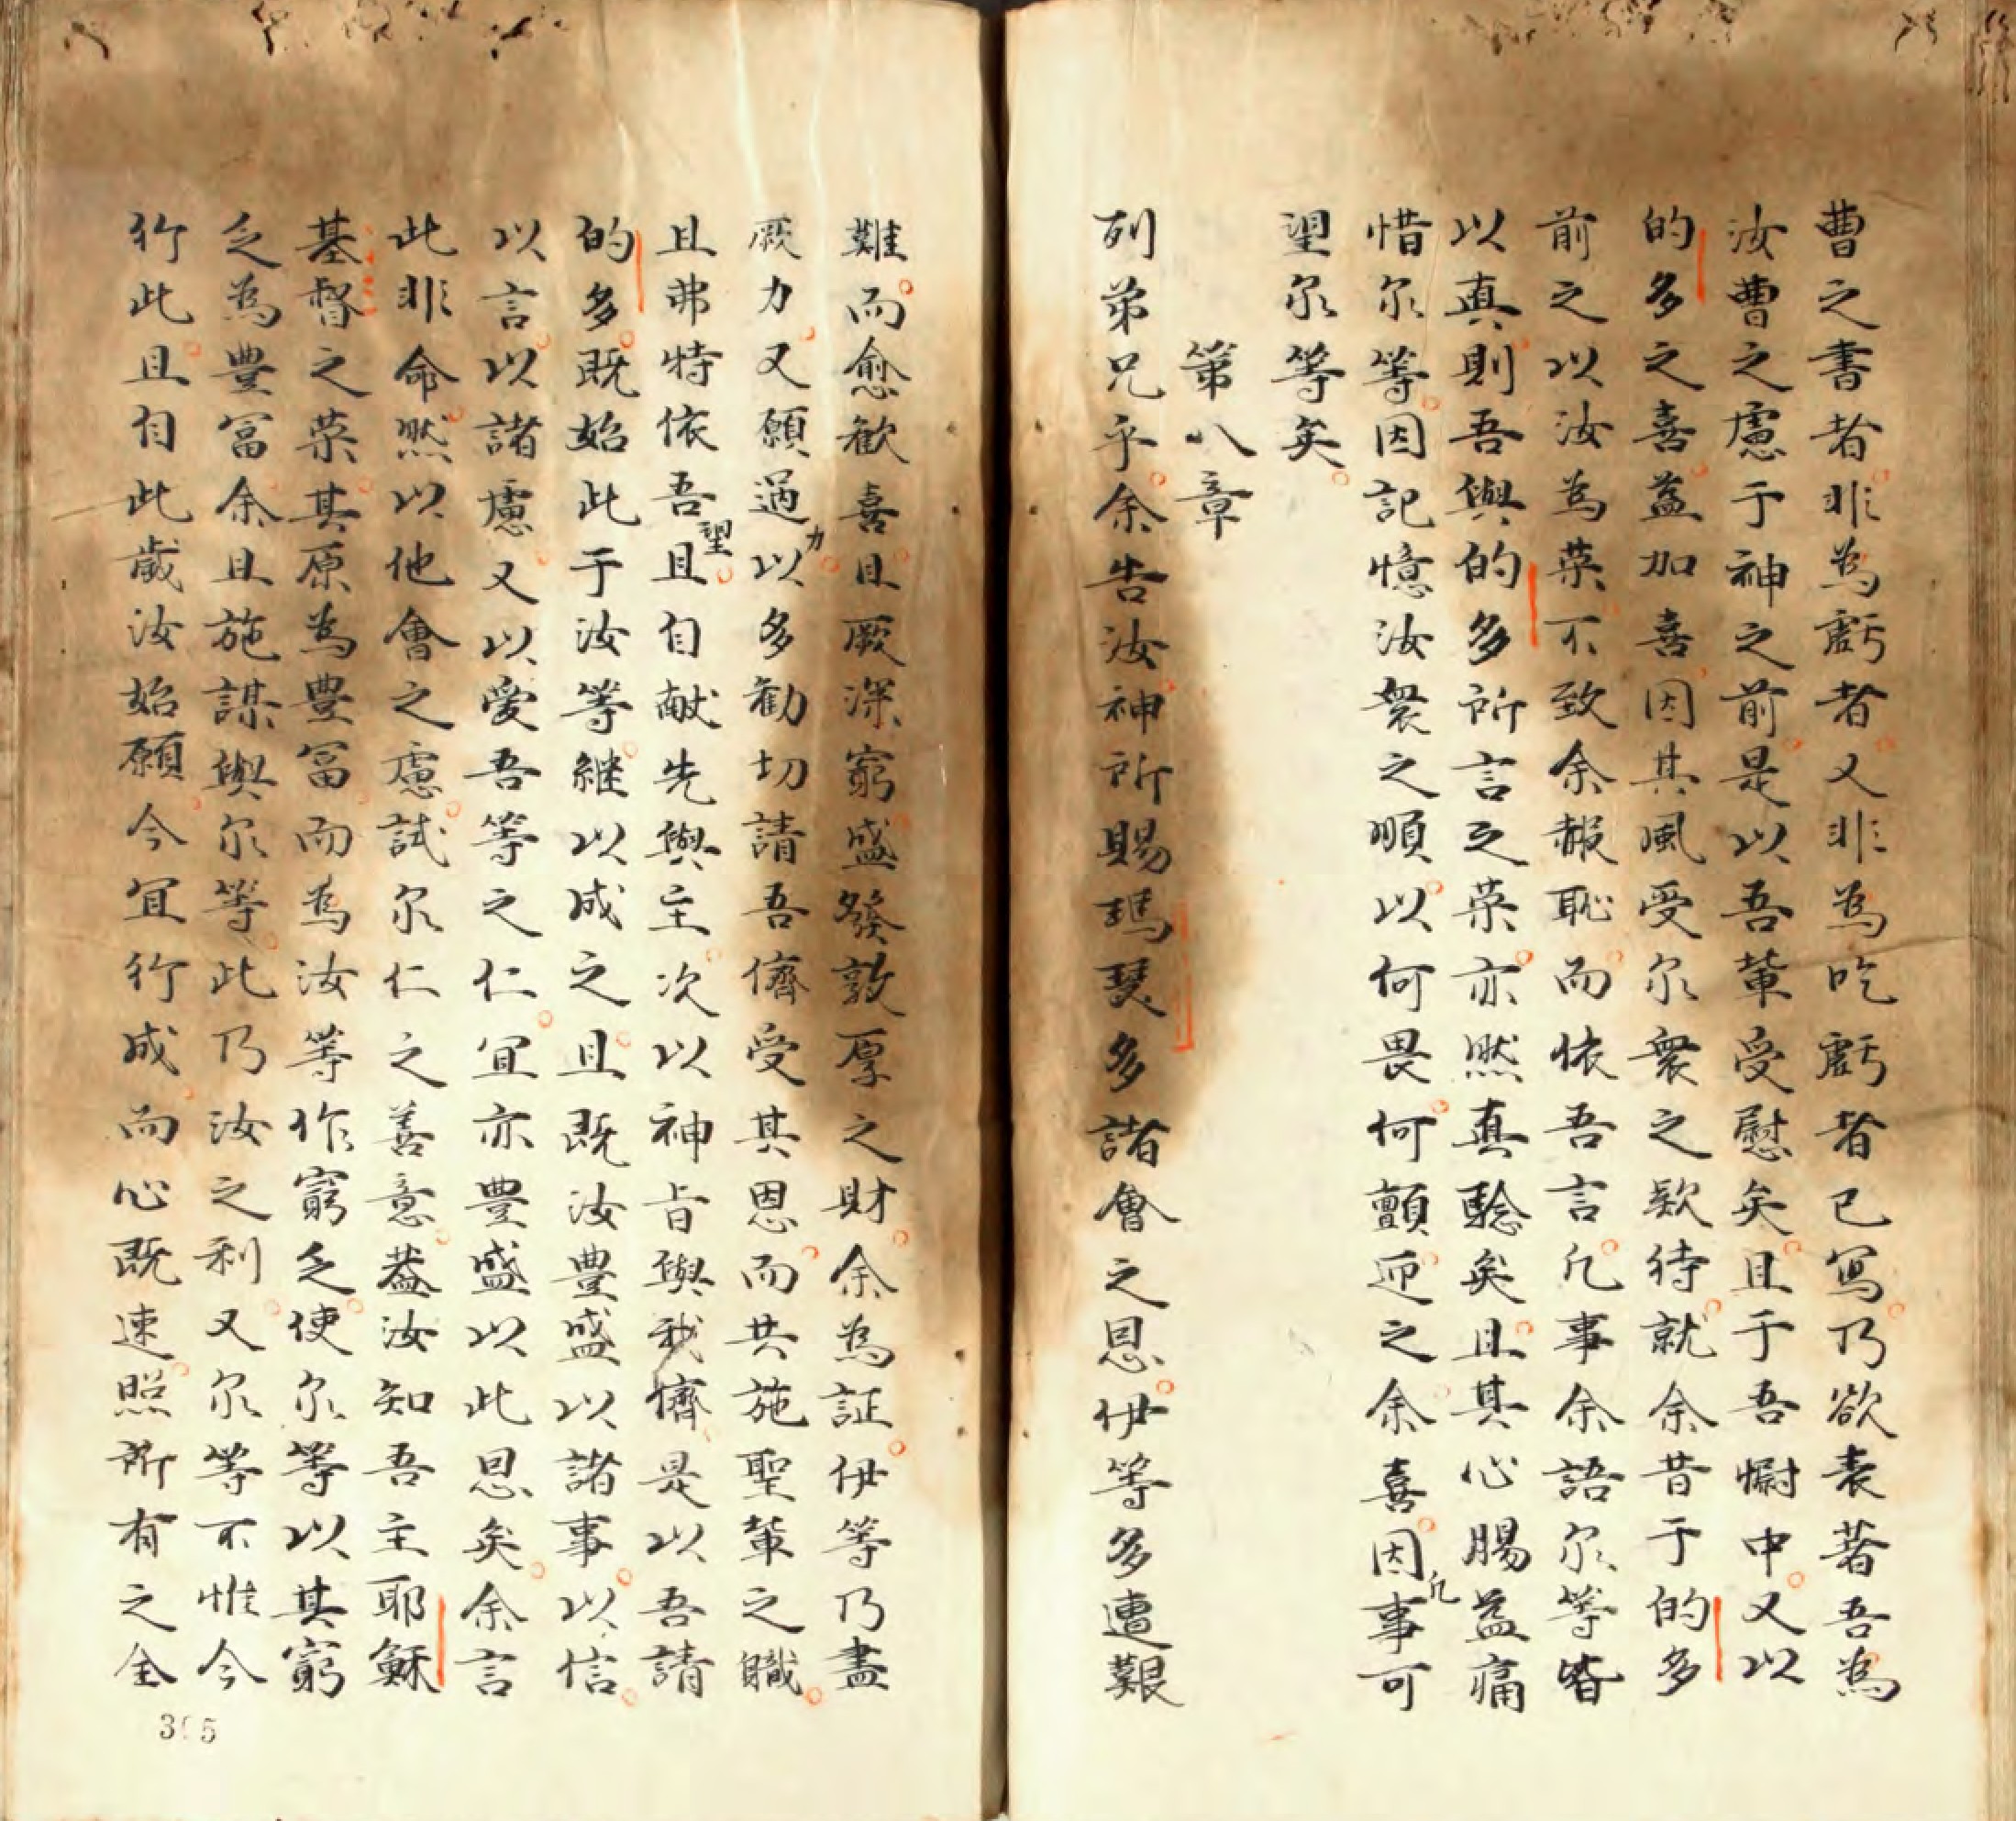 曹之書者非為虧者又非為吃虧者已寫乃欲表著吾為
汝曹之慮于神之前是以吾輩受慰矣且于吾慰中又以
的多之喜益加喜因其風受尔衆之欵待就余昔于的多
前之以汝為荣不致余赧恥而依吾言凢事余語尔等皆
以真則吾與的多所言之荣亦然真騐矣且其心腸益痛
惜尔等因記憶汝衆之順以何畏何顫迎之余喜因凢事可
望尔等矣
第八章
列弟兄乎余告汝神所賜瑪瑟多諸會之恩伊等多遭艱
難而愈歓喜且厥深窮盛發敦厚之財余為証伊等乃盡
厥力又願過力以多勸切請吾儕受其恩而共施聖輩之職
且弗特依吾望且自献先與主次以神旨與我儕是以吾請
的多既始此于汝等継以成之且既汝豊盛以諸事以信
以言以諸慮又以愛吾等之仁宜亦豊盛以此恩矣余言
此非命然以他會之慮試尔仁之善意葢汝知吾主耶穌
基督之荣其原為豊冨而為汝等作窮乏使尔等以其窮
乏為豊冨余且施謀與尔等此乃汝之利又尔等不惟今
行此且自此歳汝始願今宜行成而心既速照所有之全